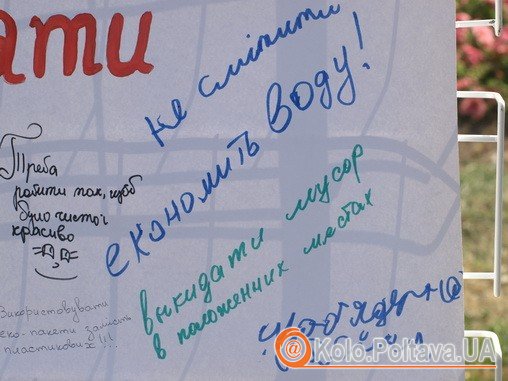 ати
не смітити
економить воду!
Треба
робити так, щоб
було чисто і
красиво
викидати мусор
в положенних местах
Використовувати
еко-пакети замість
пластикових !!!
Kolo.Poltava.UA